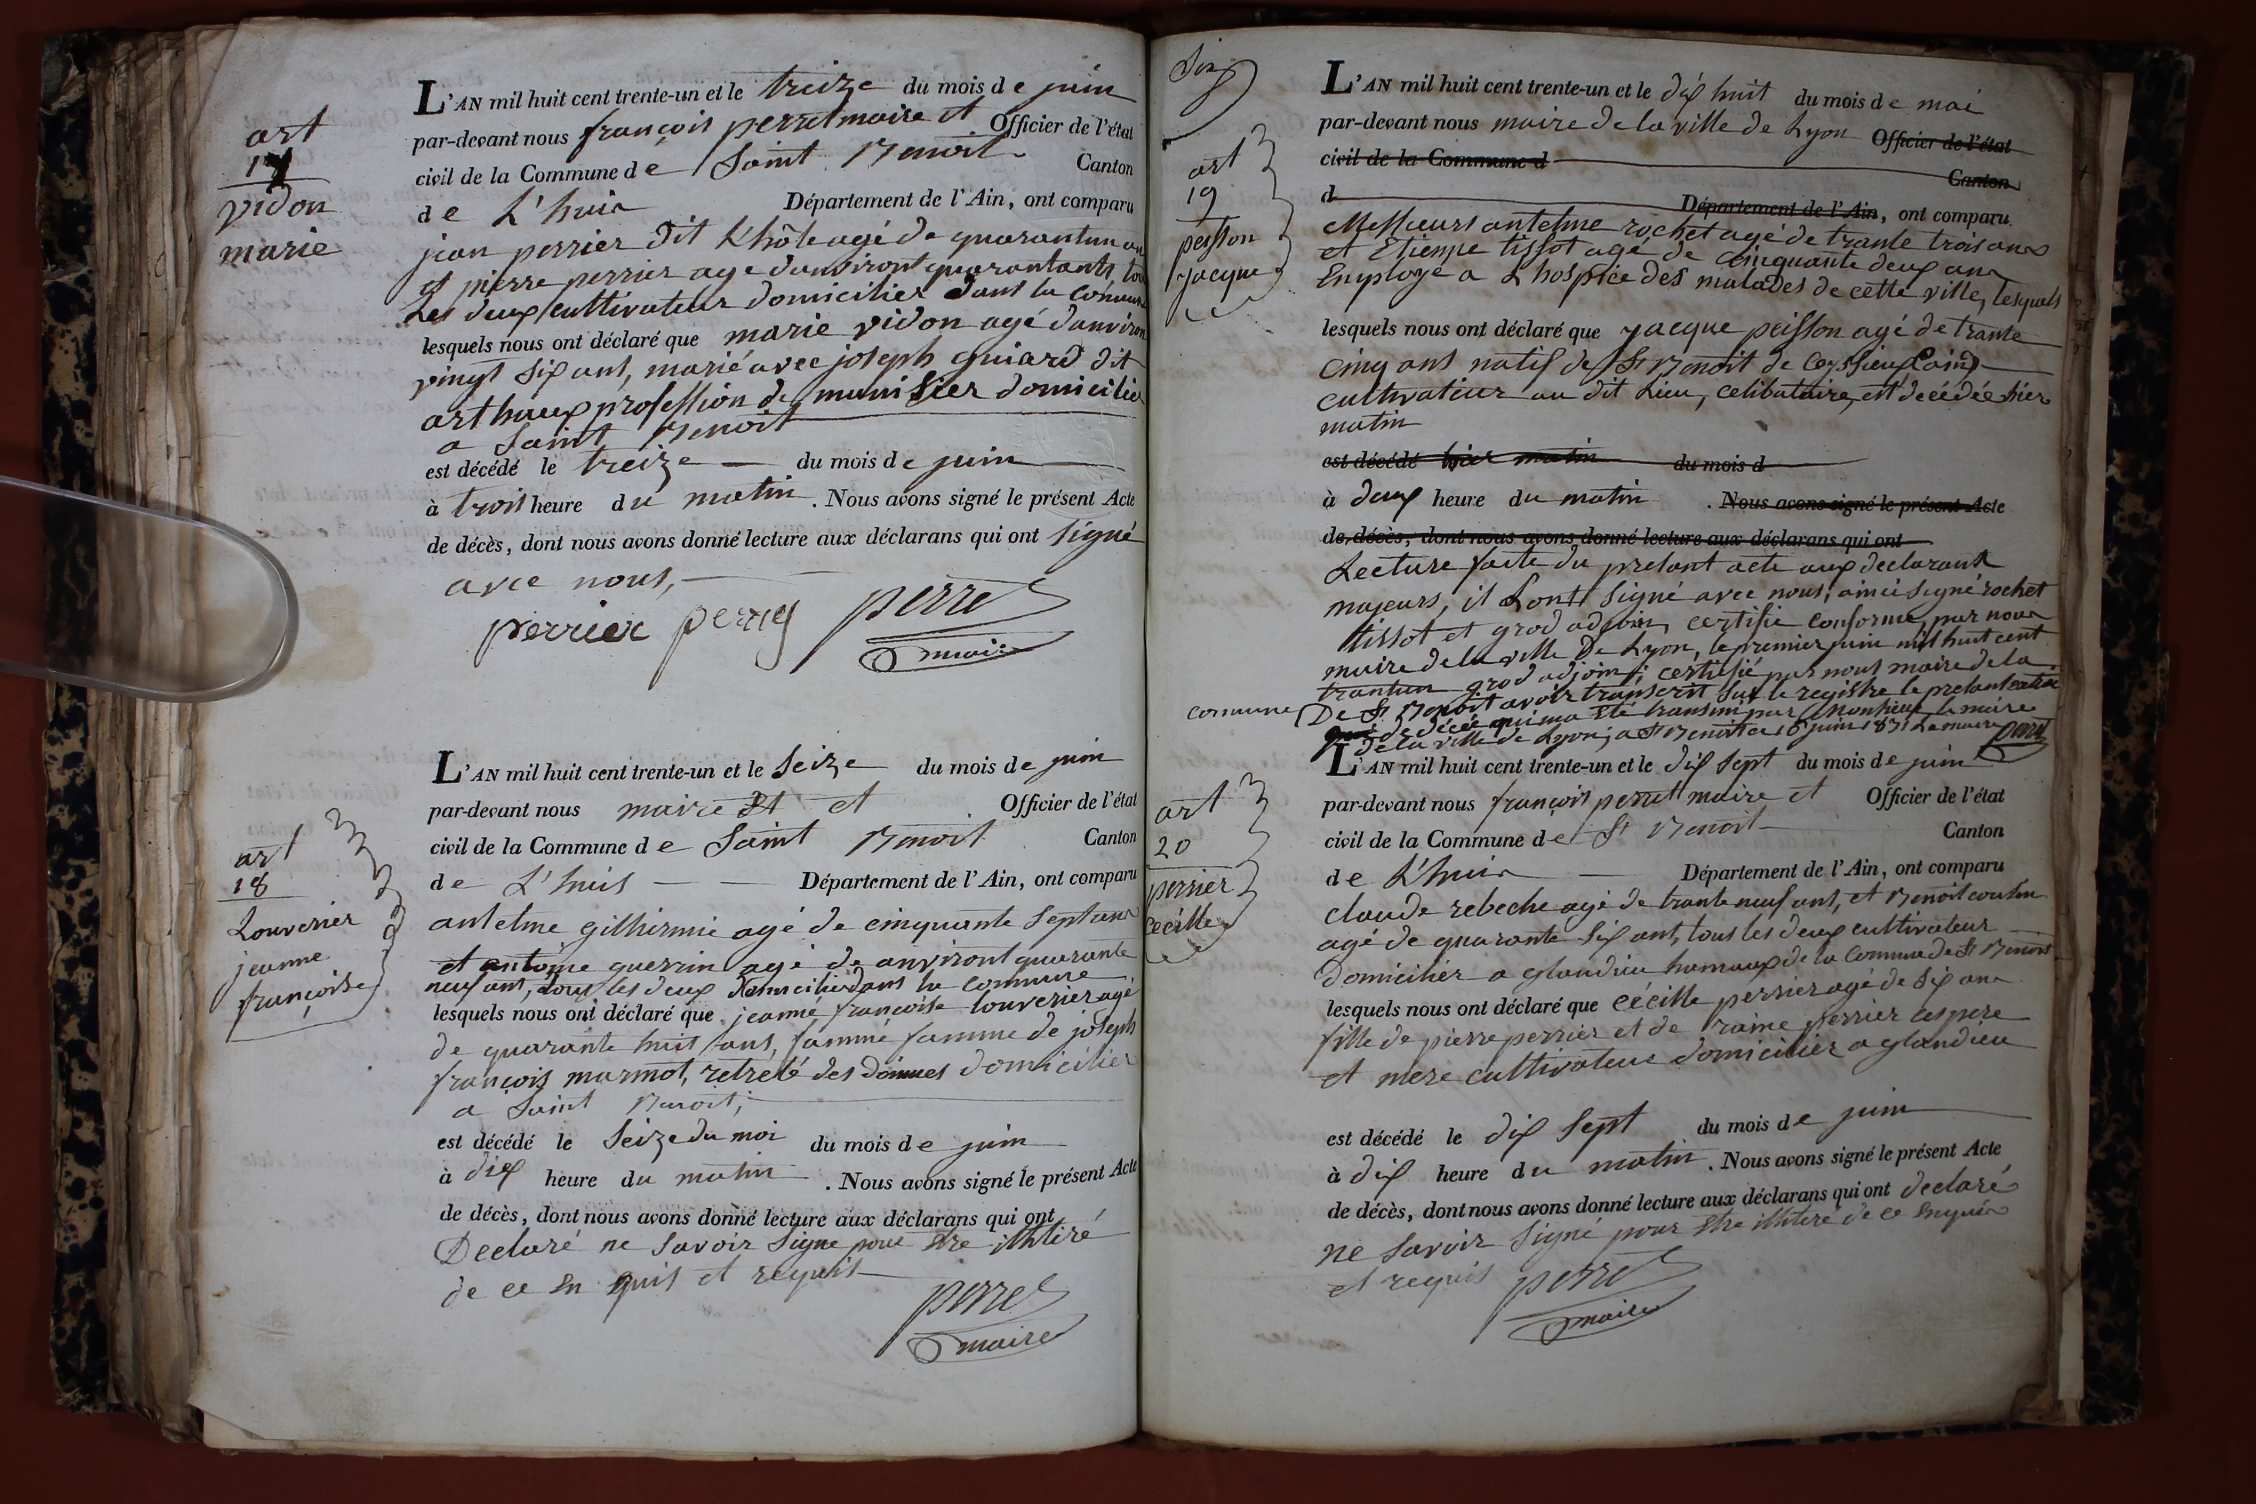 art
17
vidon
marie
L'AN mil huit cent trente-un et le treize du mois de juin
par-devant nous françois perret maire et Officier de l'état
civil de la Commune de Saint Benoit Canton
de L'huis Département de l'Ain, ont comparu
jean perrier dit L'hôte agé de quarantun an
et pierre perrier age danviront quarantants tous
Les deux cultivateur domicilier dans la commune
lesquels nous ont déclaré que marie vidon agé danviron
vingt six ans, marié avec joseph guiard dit
arthaux profession de munisier domicilier
a Saint Benoit
est décédé le treize du mois de juin
à trois heure du matin. Nous avons signé le présent Acte
de décès, dont nous avons donné lecture aux déclarans qui ont signé
avec nous,
perrier perrier perret
maire
art
18
Louverier
jeanne
françoise
L'AN mil huit cent trente-un et le Seize du mois de juin
par-devant nous maire et Officier de l'état
civil de la Commune de Saint Benoit Canton
de L'huis Département de l'Ain, ont comparu
antelme gilhirmie agé de cinquante Sept ans
et antoine guerrin agé de anviront quarante
neuf ant, tous les deux domicilier dans la commune
lesquels nous ont déclaré que jeanne françoise louverier agé
de quarante huit ans, fammé famme de joseph
françois marmot, retreté des doinnes domicilier
a Saint Benoit,
est décédé le Seize du moi du mois de juin
à dix heure du matin. Nous avons signé le présent Acte
de décès, dont nous avons donné lecture aux déclarans qui ont
Declaré ne savoir Signe pour etre illitiré
de ce en quis et requis
perret
maire
art
19
peisson
jacque
L'AN mil huit cent trente-un et le dix huit du mois de mai
par-devant nous maire de la ville de Lyon Officier de l'état
civil de la Commune d
Canton
d Département de l'Ain, ont comparu
Messieurs antelme rochet agé de trante trois ans
et Etienne tissot agé de cinquante deux ans
Employé a L'hospice des malades de cette ville, lesquels
lesquels nous ont déclaré que jacque peisson agé de trante
cinq ans natif de St Benoit de Ceyssieux (ain)
cultivateur au dit Lieu, celibataire, est decédée hier
matin
est décédé hier matin du mois d
à deux heure du matin. Nous avons signé le présent Acte
de décès, dont nous avons donné lecture aux déclarans qui ont
Lecture faite du presant acte aux declarant
majeurs, il Lont signé avec nous, ainci signé rochet
tissot et grod adjoin, certifie conforme, par nous
maire de la ville De Lyon, le premier juin mil huit cent
trantun grod adjoint; certifié par nous maire de la
commune De St Benoit avoir transcrit sur le registre le presant
de décée qui ma été transmi par Monsieur le maire
de la ville de Lyon, a St Benoit ce 16 juin 1831 Le maire perret
art
20
perrier
cecille
L'AN mil huit cent trente-un et le dix sept du mois de juin
par-devant nous françois perret maire et Officier de l'état
civil de la Commune de St Benoit Canton
de L'huis Département de l'Ain, ont comparu
claude rebeche agé de trante neuf ans, et Benoit
agé de quarante six ant, tous les deux cultivateur
domicilier a glandieu hamaux de la Commune de St Benoit
lesquels nous ont déclaré que cécille perrier agé de six ans
fille de pierre perrier et de raine perrier ces pere
et mere cultivateur domicilier a glandieu
est décédé le dix sept du mois de juin
à dix heure du matin. Nous avons signé le présent Acte
de décès, dont nous avons donné lecture aux déclarans qui ont declaré
ne savoir Signé pour etre illitiré de ce enquis
et requis perret
maire